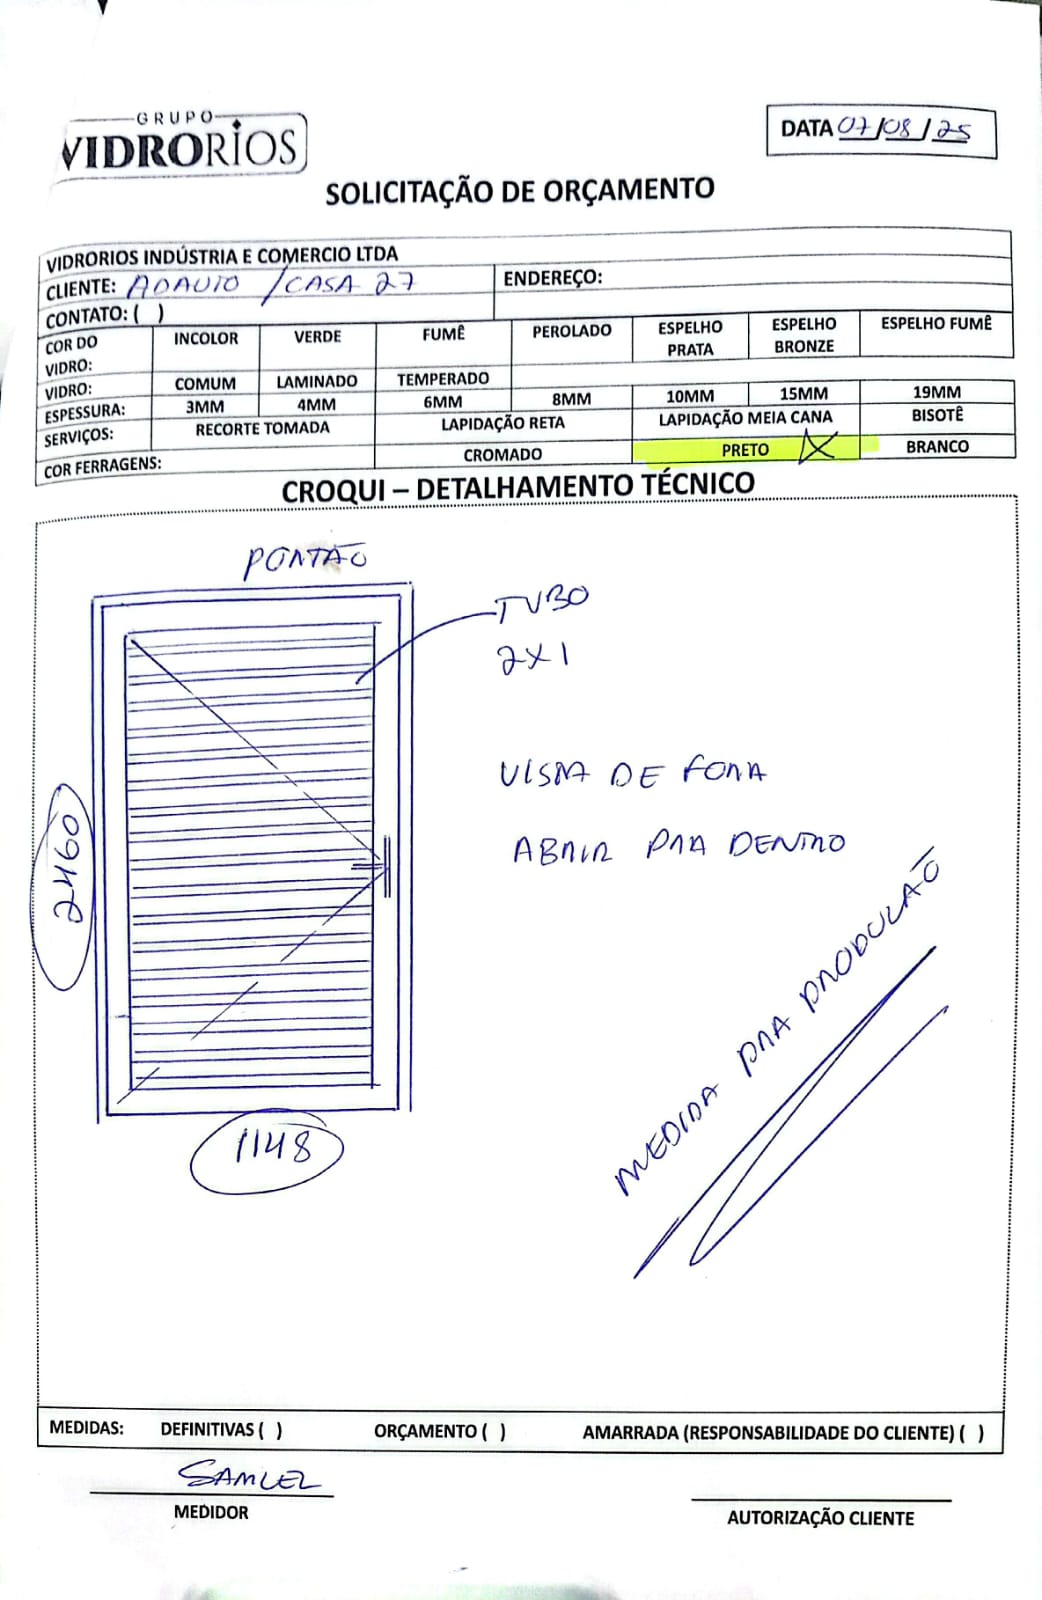 GRUPO
VIDRORIOS
DATA 07/08/25
SOLICITAÇÃO DE ORÇAMENTO
VIDRORIOS INDÚSTRIA E COMERCIO LTDA
CLIENTE: ADAUTO / CASA 27
ENDEREÇO:
CONTATO: ( )
COR DO VIDRO: INCOLOR VERDE FUMÊ PEROLADO ESPELHO PRATA ESPELHO BRONZE ESPELHO FUMÊ
VIDRO: COMUM LAMINADO TEMPERADO
ESPESSURA: 3MM 4MM 6MM 8MM 10MM 15MM 19MM
SERVIÇOS: RECORTE TOMADA LAPIDAÇÃO RETA LAPIDAÇÃO MEIA CANA BISOTÊ
COR FERRAGENS: CROMADO PRETO X BRANCO
CROQUI – DETALHAMENTO TÉCNICO
PORTÃO
TUBO
2X1
VISTA DE FORA
ABRIR PRA DENTRO
2460
MEDIDA PRA PRODUÇÃO
1148
MEDIDAS: DEFINITIVAS ( ) ORÇAMENTO ( ) AMARRADA (RESPONSABILIDADE DO CLIENTE) ( )
SAMUEL
MEDIDOR
AUTORIZAÇÃO CLIENTE